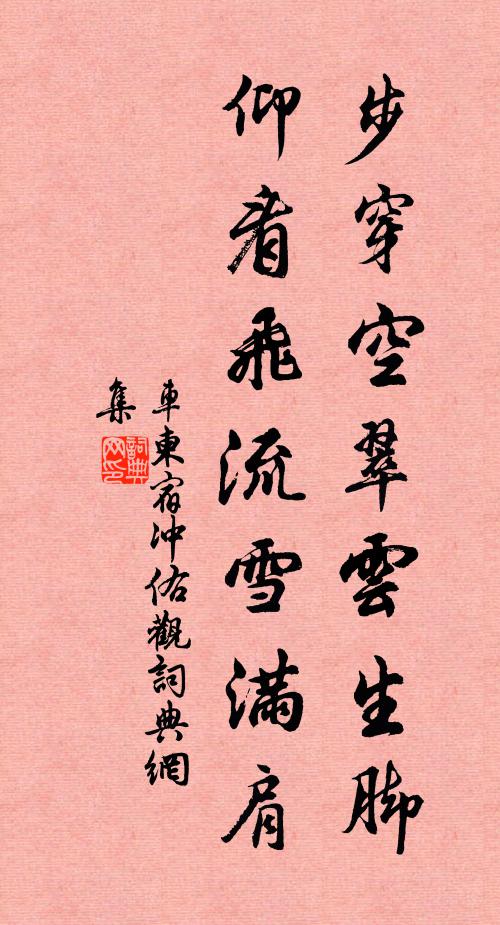 步穿空翠雲生脚
仰看飛流雪滿肩
車東宿冲佑觀詞典網
集
詞典
网印